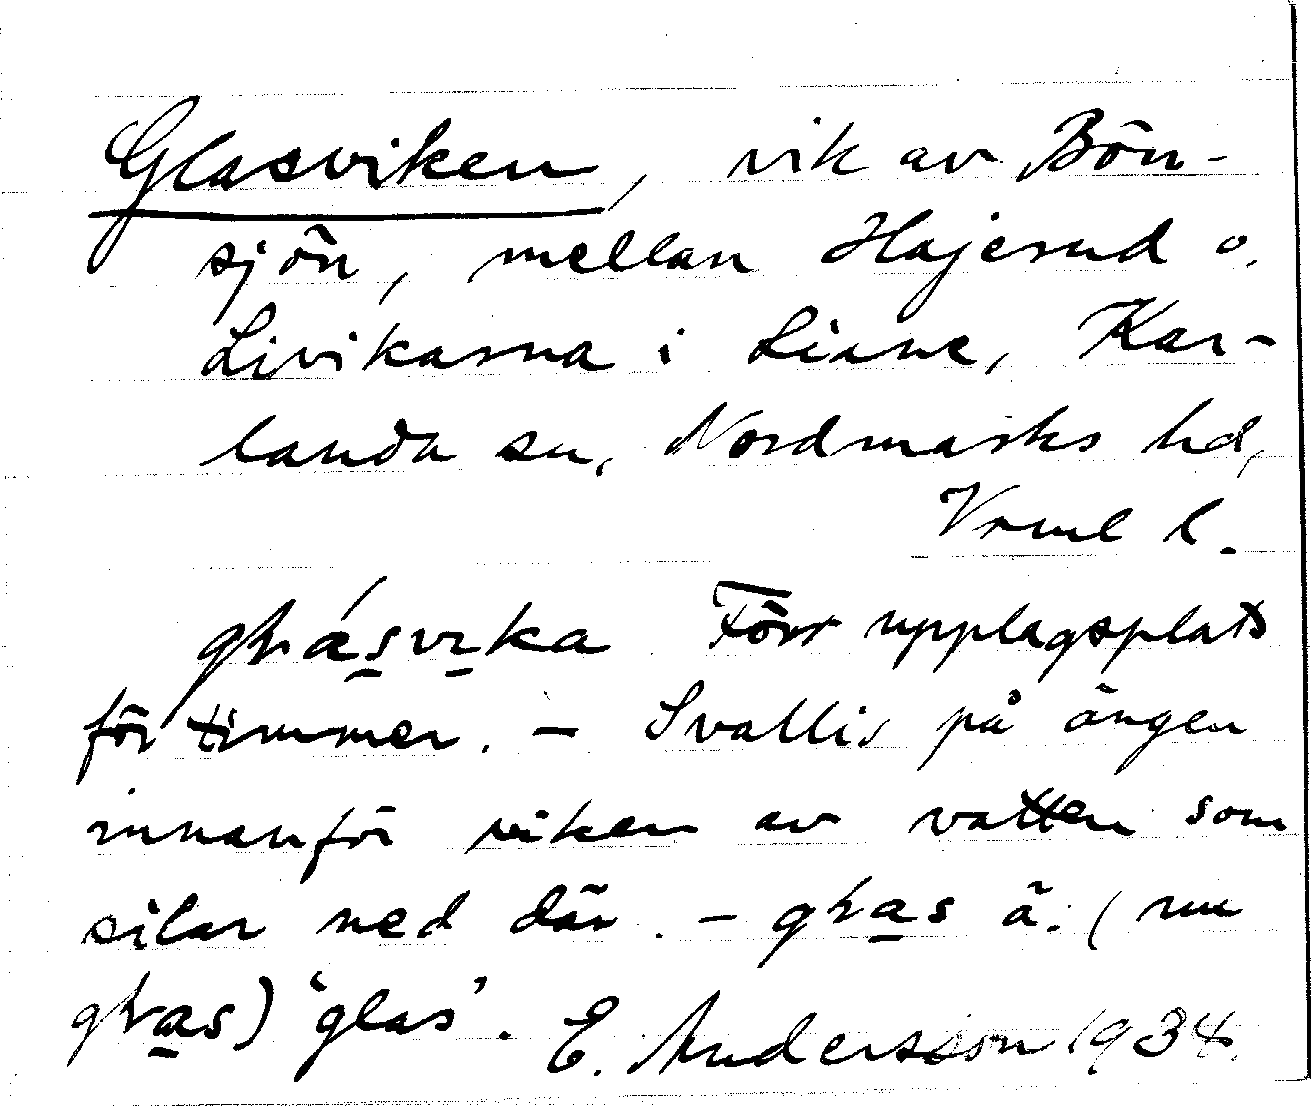 Glasviken, vik av Bön-
sjön, mellan Hajerud o.
Livikarna i Liane, Kar-
landa sn, Nordmarks hd,
Vrml l.
Förr upplagsplats
för timmer. – Svallis på ängen
innanför viken av vatten som
silar ned där. – ä. (nu
) 'glas'. E. Andersson 1934.